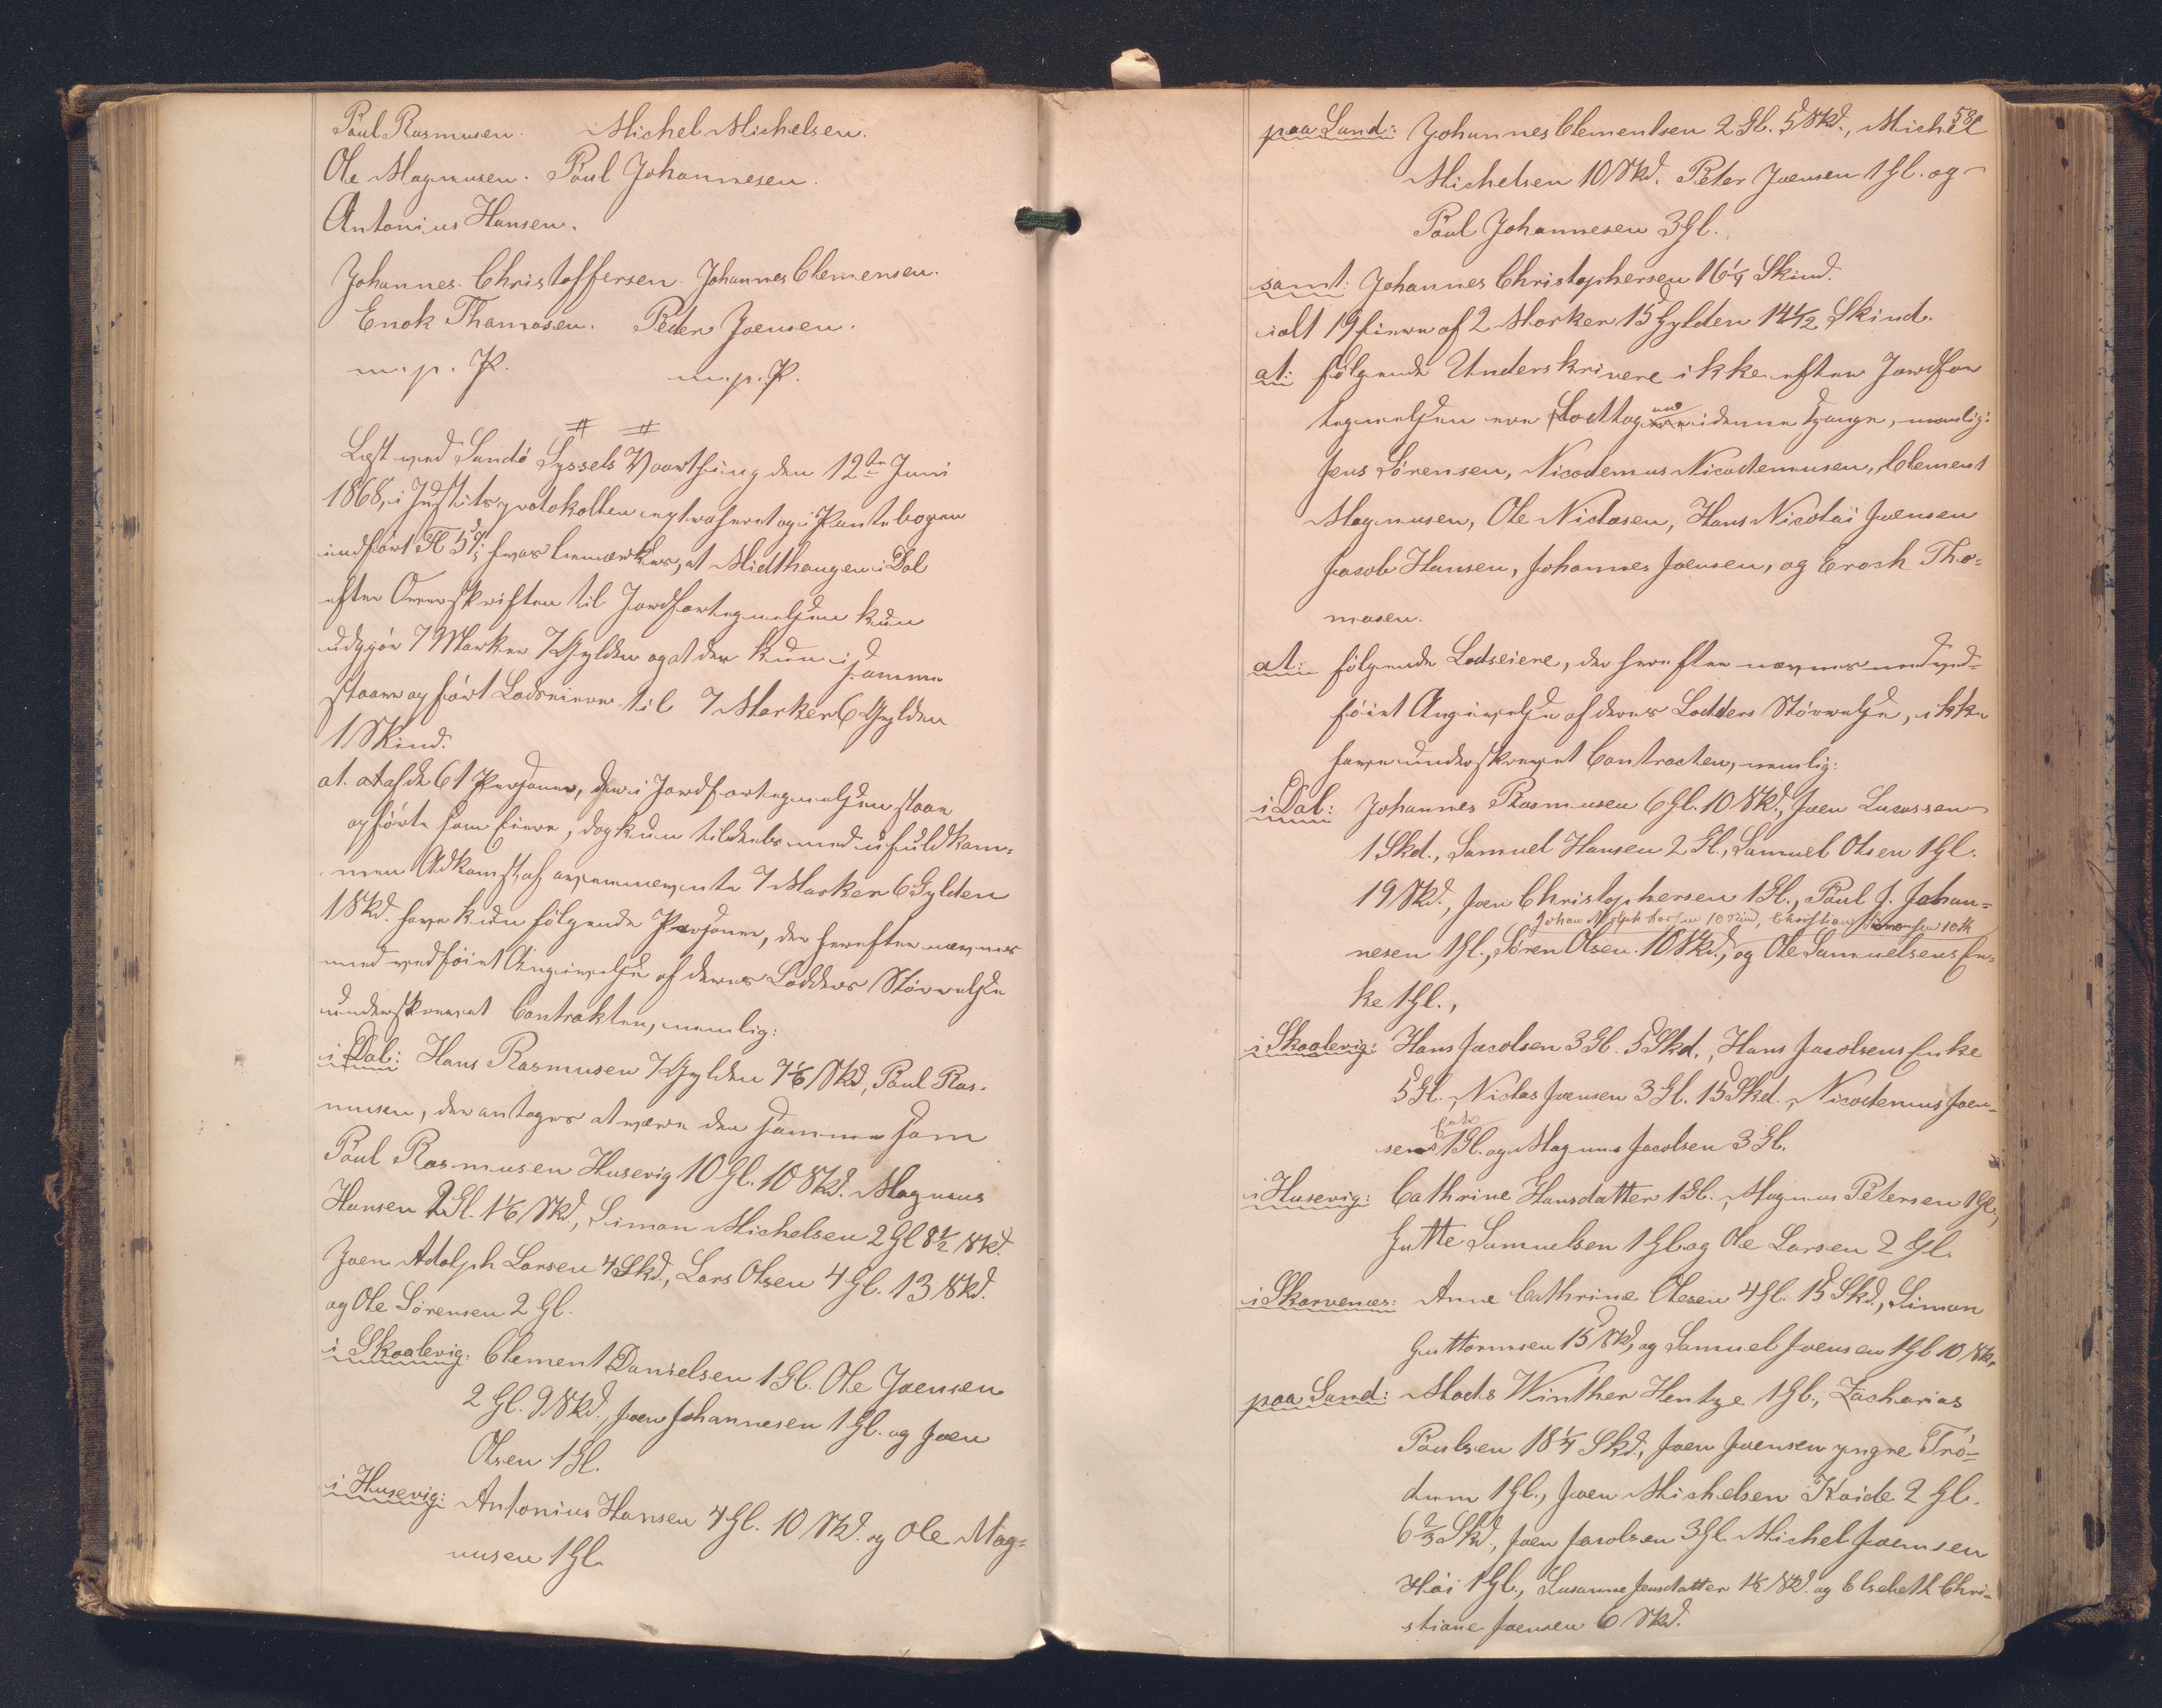 Poul Rasmusen. Michel Michelsen.
Ole Magnusen. Poul Johannesen.
Antonius Hansen.
Johannes Christoffersen. Johannes Clemensen.
Enok Thomasen. Peder Joensen.
m. p. P. m. p. P.
Læst ved Sandö Syssels Vaarthing den 12te Juni
1868, i Justitsprotokollen extraheret og i Pantebogen
indført hvor bemærkes, at Midthaugen i Dal
efter Overskriften til Jordfortegnelsen kun
udgjør 7 Marker 7 Gylden og at der kun i samme
staaer opført Lodseiere til 7 Marker 6 Gylden
1 Skind.
at. at af de 61 Personer, der i Jordfortegnelsen staae
opførte som Eiere, dog kun tildeels med ufuldkom-
men Adkomst, af ovennævnte 7 Marker 6 Gylden
1 Skd. have kun følgende Personer, der herefter nævnes
med vedføiet Angivelse af deres Lodders Størrelse
underskrevet Contrakten, nemlig:
i Dal: Hans Rasmusen 7 Gylden 7 1/6 Skd, Poul Ras-
musen, der antages at være den samme som
Poul Rasmusen Husevig 10 Gl. 10 Skd. Magnus
Hansen 2 Gl. 1 1/6 Skd, Simon Michelsen 2 Gl 8 1/2 Skd.
Joen Adolph Larsen 4 Skd., Lars Olsen 4 Gl. 13 Skd.
og Ole Sörensen 2 Gl.
i Skaalevig: Clement Danielsen 1 Gl. Ole Joensen
2 Gl. 9 Skd., Joen Johannesen 1 Gl. og Joen
Olsen 1 Gl.
i Husevig: Antonius Hansen 4 Gl. 10 Skd. og Ole Mag-
nusen 1 Gl.
58
paa Sand: Johannes Clementsen 2 Gl. 5 Skd., Michel
Michelsen 10 Skd. Peter Joensen 1 Gl. og
Poul Johannesen 3 Gl.
samt: Johannes Christophersen 16 1/4 Skind.
ialt 19 Eiere af 2 Marker 15 Gylden 14 1/12 Skind.
at: følgende Underskrivere ikke efter Jordfor
tegnelsen ere Lodtagere i denne Hauge, nemlig:
Jens Sörensen, Nicodemus Nicodemusen, Clement
Magnusen, Ole Niclasen, Hans Nicolai Joensen
Jacob Hansen, Johannes Joensen, og Enoch Tho-
masen.
at: følgende Lodseiere, der herefter nævnes med ved-
føiet Angivelse af deres Lodders Størrelse, ikke
have underskrevet Contracten, nemlig:
i Dal: Johannes Rasmusen 6 Gl. 10 Skd., Joen Lucassen
1 Skd., Samuel Hansen 2 Gl., Samuel Olsen 1 Gl.
19 Skd., Joen Christophersen 1 Gl., Poul J. Johan-
Johan Adolph Larsen 10 Skind, Christian Simonsen 10 Sk
nesen 1 Gl., Sören Olsen 10 Skd., og Ole Samuelsens En-
ke 1 Gl.,
i Skaalevig: Hans Jacobsen 3 Gl. 5 Skd., Hans Jacobsens Enke
5 Gl., Niclas Joensen 3 Gl. 15 Skd., Nicodemus Joen-
Enke
sens 1 Gl. og Magnus Jacobsen 3 Gl.
i Husevig: Cathrine Hansdatter 1 Gl., Magnus Petersen 1 Gl.,
Gutte Samuelsen 1 Gl. og Ole Larsen 2 Gl.
i Skarvenæs: Anne Cathrine Olesen 4 Gl. 15 Skd., Simon
Guttormsen 15 Skd, og Samuel Joensen 1 Gl 10 Sk.
paa Sand: Mads Winther Hentze 1 Gl., Zacharias
Poulsen 18 1/4 Skd., Joen Joensen yngre Trö-
dum 1 Gl., Joen Michelsen Koide 2 Gl.
6 2/3 Skd., Joen Jacobsen 3 Gl. Michel Joensen
Höi 1 Gl., Susanne Jensdatter Skd. og Elsebeth Chri-
stiane Joensen 6 Skd.